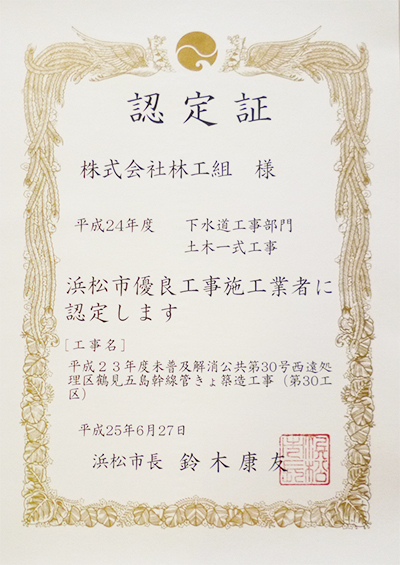 認定証
株式会社林工組 様
平成24年度 下水道工事部門
土木一式工事
浜松市優良工事施工業者に
認定します
[工事名]
平成23年度未普及解消公共第30号西遠処
理区鶴見五島幹線管きょ築造工事（第30工
区）
平成25年6月27日
浜松市長 鈴木康友